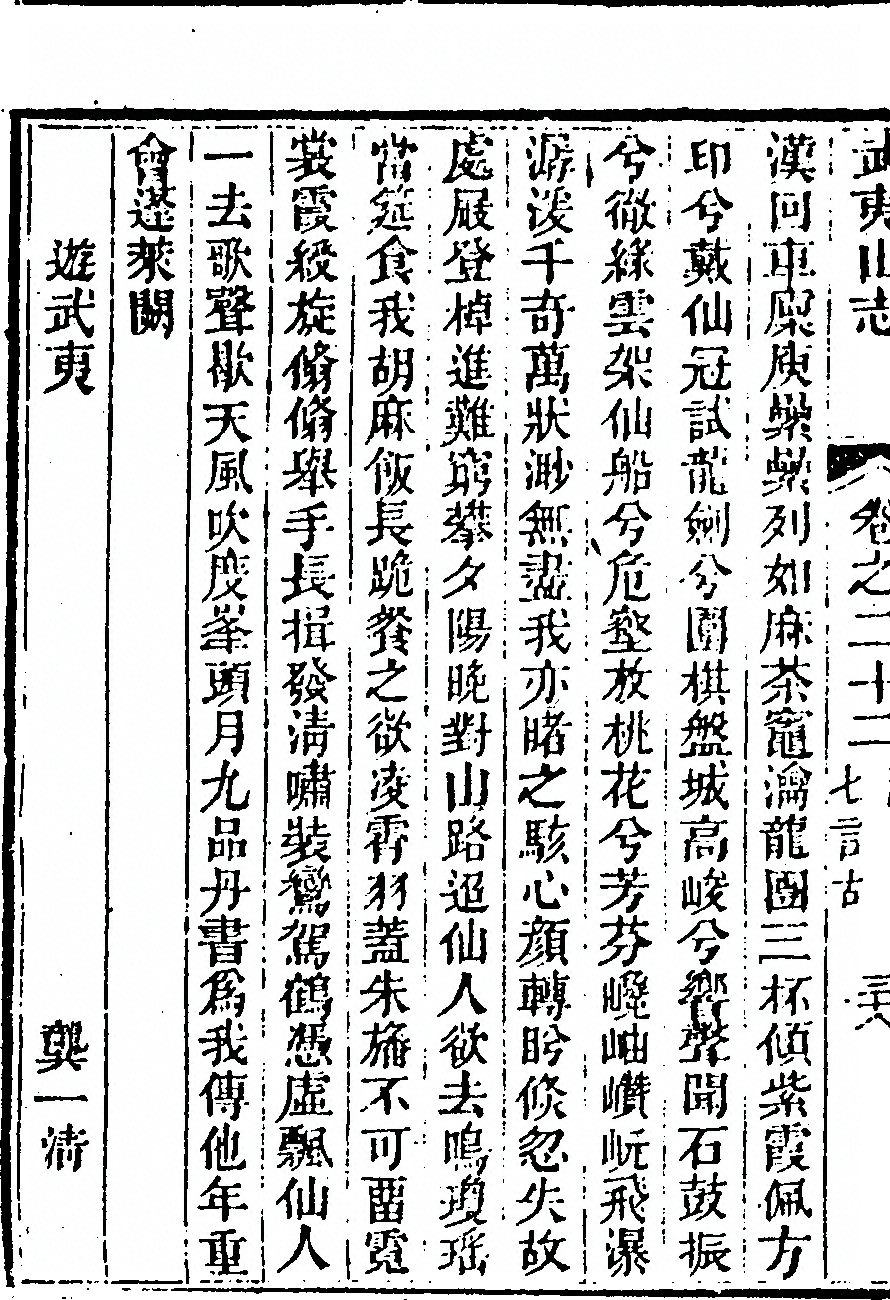 武夷山志　卷之二十二 七言古　三六
漢回車廩庾纍纍列如麻茶竈瀹龍團三杯傾紫霞佩方
印兮戴仙冠試龍劍兮圍棋盤城高峻兮響聲聞石鼓振
兮徹綠雲架仙船兮危壑放桃花兮芳芬巉岫巑岏飛瀑
潺湲千奇萬狀渺無盡我亦睹之駭心顏轉盻倐忽失故
處屐登棹進難窮攀夕陽晚對山路迢仙人欲去鳴瓊瑶
當筵食我胡麻飯長跪餐之欲凌霄羽蓋朱旛不可畱霓
裳霞綬旋翛翛舉手長揖發清嘯裝鸞駕鶴憑虛飄仙人
一去歌聲歇天風吹度峯頭月九品丹書爲我傳他年重
會蓬萊闕
遊武夷　龔一清